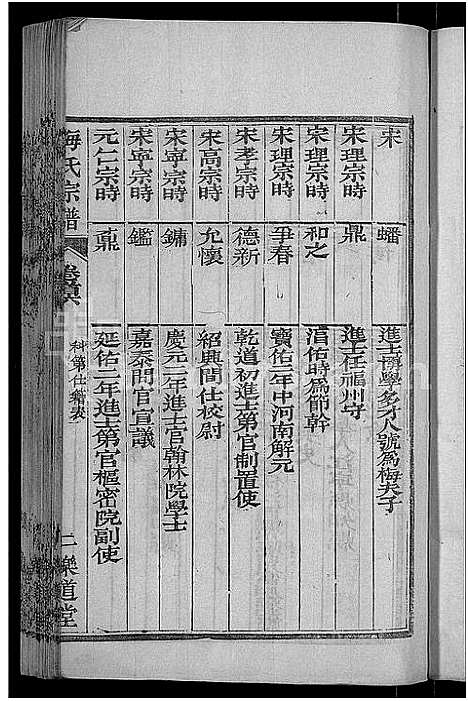 宋 蟠 進士博學多才人號為梅夫子
宋理宗時 鼎 進士任福州守
宋理宗時 和之 淯佑時為節幹
宋理宗時 爭春 寶佑二年中河南解元
宋孝宗時 德新 乾道初進士第官制置使
宋高宗時 允懷 紹興間仕校尉
宋寧宗時 鏞 慶元二年進士官翰林院學士
宋寧宗時 鑑 嘉泰間官宣議
元仁宗時 鼒 延佑二年進士第官樞密院副使
梅氏宗譜 科第仕籍表 三樂道堂